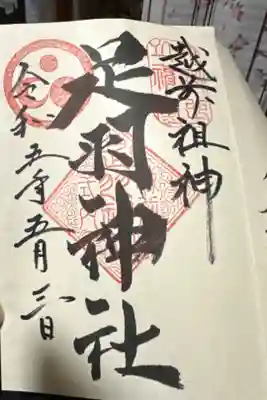 越前祖神
足羽神社
令和五年五月三日